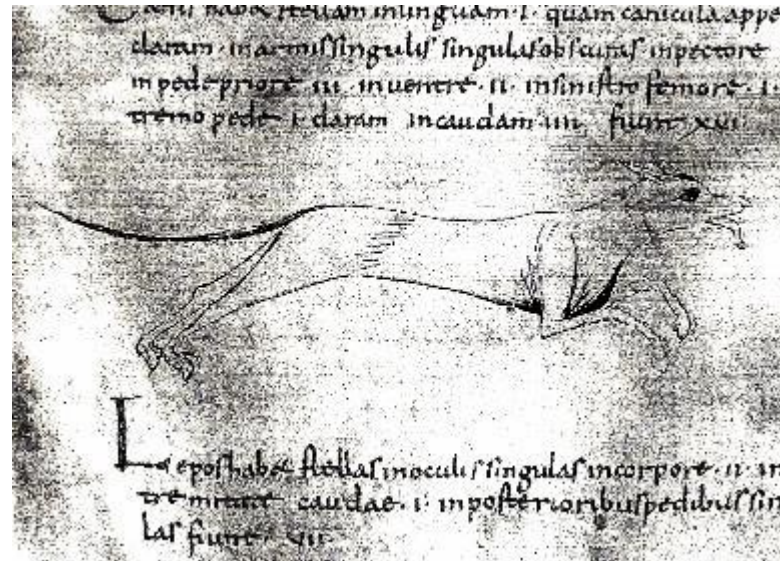 Canis habet stellam in linguam · I · quam canicula appe
claram · in armis singulis singulas obscuras in pectore
in pede priore · III · in ventre · II · in sinistro femore · I ·
tremo pede · I · claram in caudam · IIII · fiunt XVI ·
Lepos habet stellas in oculis singulas in corpore · II · in
caudae · I · in posterioribus pedibus sin
las fiunt · VII ·